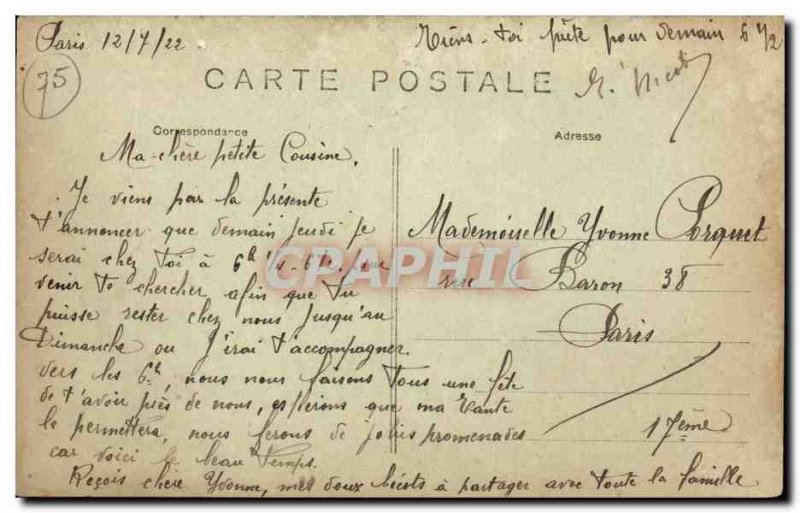 Paris 12/7/22
Tiens-toi prête pour demain 6 1/2
75
CARTE POSTALE
Correspondance
Adresse
Ma chère petite Cousine,
Je viens par la présente
t'annoncer que demain Jeudi je
serai chez toi à 6h
venir te chercher afin que tu
puisse rester chez nous jusqu'au
Dimanche ou j'irai t'accompagner
vers les 6h, nous nous faisons tous une fête
de t'avoir près de nous, espérons que ma Tante
le permettera, nous ferons de jolies promenades
car voici le beau temps.
Reçois chère Yvonne, mes doux bécots à partager avec toute la famille
Mademoiselle Yvonne Porquet
rue Baron 38
Paris
17ème
CPAPHIL